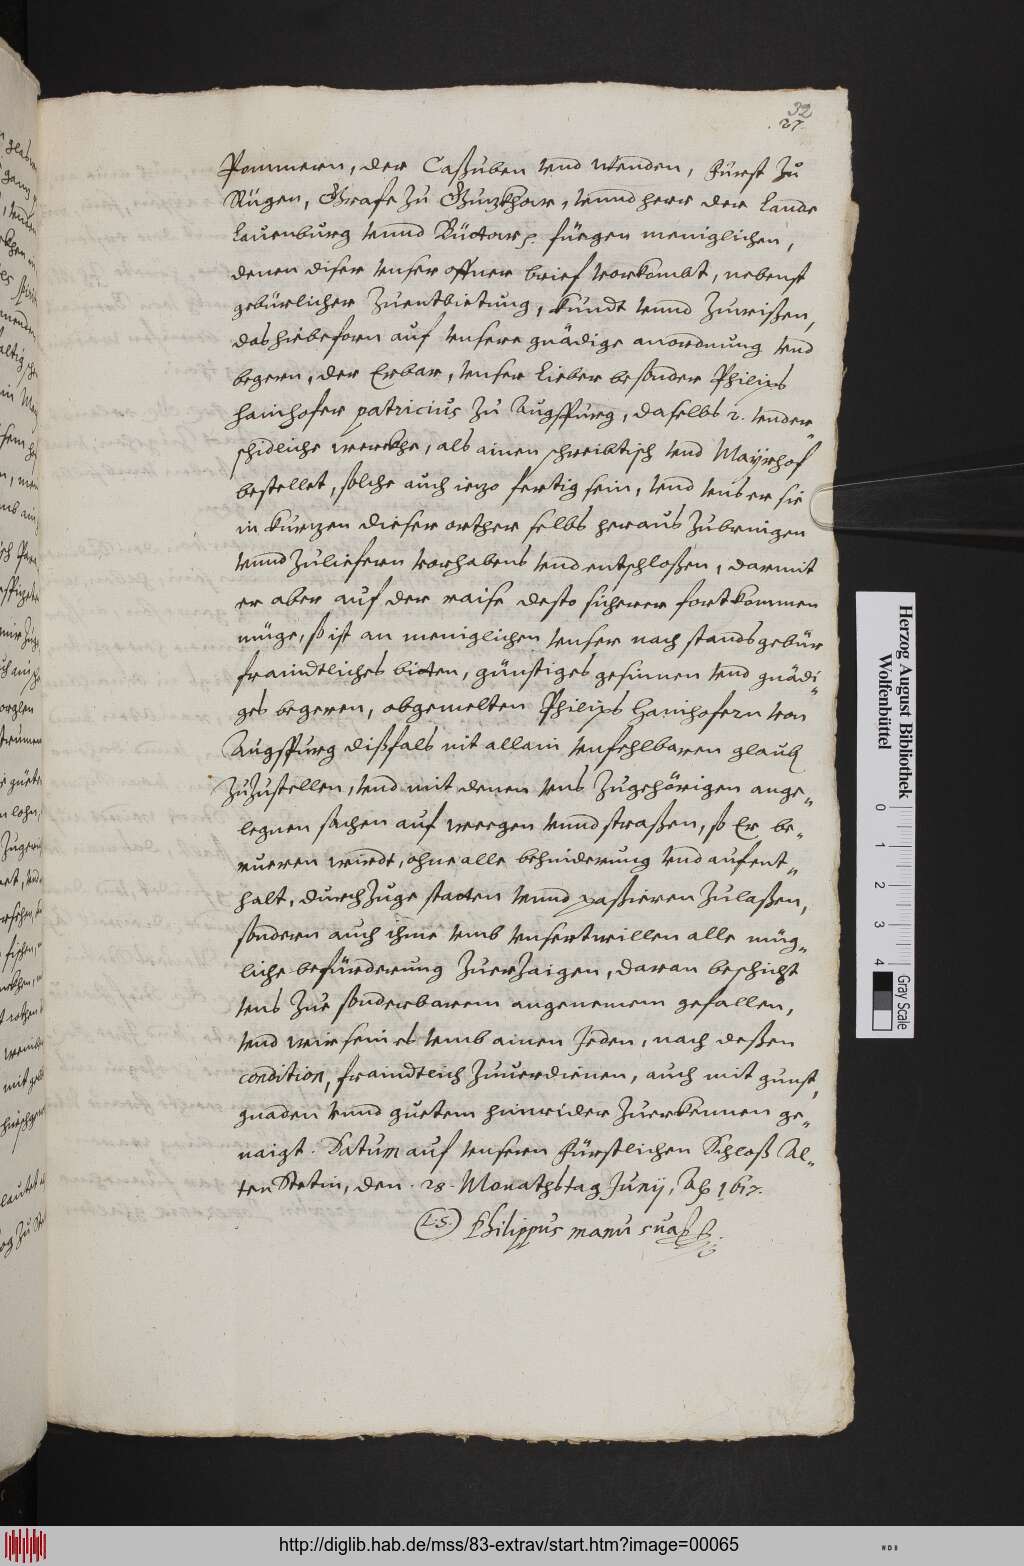 32
27.
Pommern, der Caßuben vnd Wenden, Fürst zu
Rügen, Grafe zu Guzkhow, vnnd herr der Lande
Lauenburg vnnd Büttow p. fuegen meniglichen,
denen diser vnser offner brief vorkombt, nebenst
gebürlicher Zuentbietung, kundt vnnd Zuwißen,
das hiebeforn auf vnsere gnädige anordnung vnd
begern, der Erbar, vnser lieber besonder Philips
Hainhofer patricius zu Augspurg, daselbs 2. vnder„
schidliche werckhe, als ainen schreibtisch vnd Mayrhof
bestellet, solche auch iezo fertig sein, vnd vns er sie
in kurzen dieser orther selbs heraus Zubringen
vnnd Zuliefern vorhabens vnd entschloßen, darmit
er aber auf der raise desto sicherer fortkommen
müge, so ist an meniglichen vnser nach standsgebür
fraindtliches bitten, günstiges gesinnen vnd gnädi„
ges begeren, obgemelten Philips Hainhofern von
Augspurg dißfals nit allain vnfehlbaren glaub
Zuzustellen, vnd mit denen vns Zugehörigen ange„
legnen sachen auf weegen vnnd straßen, so Er be„
rueren wirdt, ohne alle behinderung vnd aufent„
halt, durchzuge statten vnnd paßieren Zulaßen,
sondern auch ihme vmb vnsertwillen alle müg„
liche befürderung Zuerzaigen, daran beschicht
vns Zue sonderbarem angenemem gefallen,
vnd wir sein es vmb ainen Jeden, nach deßen
condition, fraindtlich Zuuerdienen, auch mit gunst,
gnaden vnnd guetem hinwider Zuerkennen ge„
naigt. Datum auf vnsern Fürstlichen Schloß Al„
ten Stetin, den . 28. Monathstag Junij, Ao 1617.
L.S. Philippus manu sua
Herzog August Bibliothek
Wolfenbüttel
0 1 2 3 4
Gray Scale
http://diglib.hab.de/mss/83-extrav/start.htm?image=00065